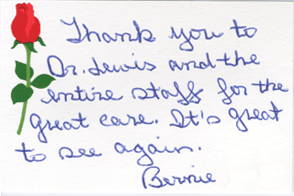 Thank you to
Dr. Lewis and the
entire staff for the
great care. It's great
to see again.
Bernie